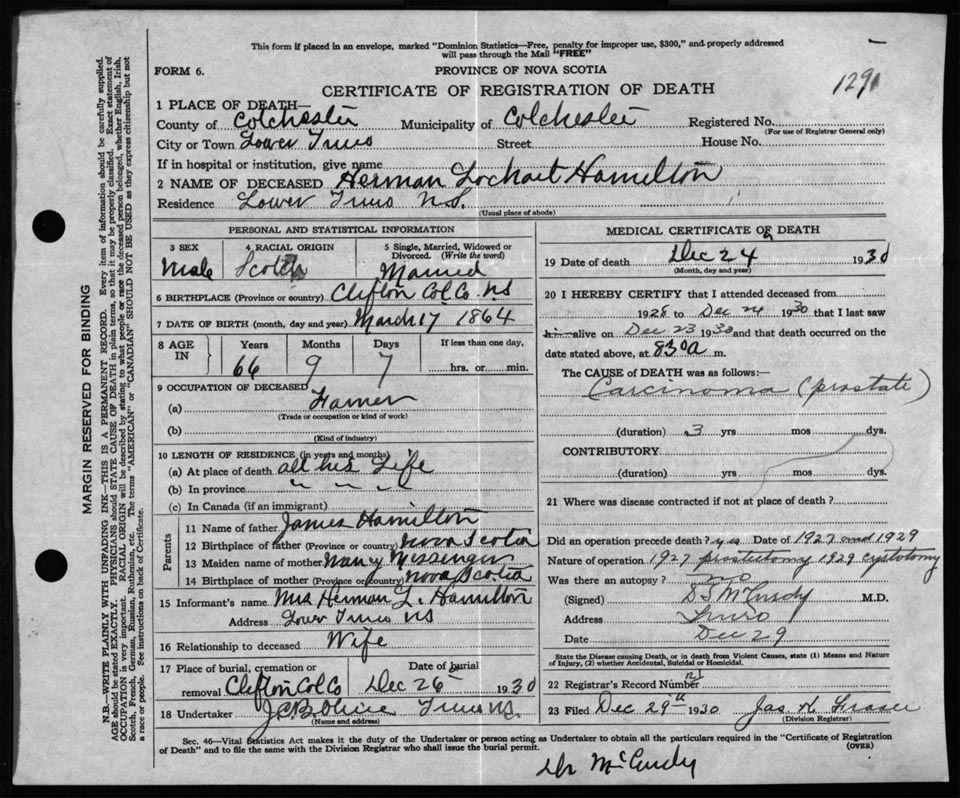 This form if placed in an envelope, marked "Dominion Statistics—Free, penalty for improper use, $300," and properly addressed
will pass through the Mail "FREE"
FORM 6.
PROVINCE OF NOVA SCOTIA
1291
CERTIFICATE OF REGISTRATION OF DEATH
1 PLACE OF DEATH—
County of Colchester Municipality of Colchester Registered No.
(For use of Registrar General only)
City or Town Lower Truro Street House No.
If in hospital or institution, give name
2 NAME OF DECEASED Herman Lockhart Hamilton
Residence Lower Truro N.S.
(Usual place of abode)
PERSONAL AND STATISTICAL INFORMATION
3 SEX 4 RACIAL ORIGIN 5 Single, Married, Widowed or
Divorced. (Write the word)
Male Scotch Married
6 BIRTHPLACE (Province or country) Clifton Col. Co. N.S
7 DATE OF BIRTH (month, day and year) March 17 1864
8 AGE IN Years Months Days If less than one day,
66 9 7 hrs. or min.
9 OCCUPATION OF DECEASED
(a) Farmer
(Trade or occupation or kind of work)
(b)
(Kind of industry)
10 LENGTH OF RESIDENCE (in years and months)
(a) At place of death all his Life
(b) In province " " " "
(c) In Canada (if an immigrant)
Parents
11 Name of father James Hamilton
12 Birthplace of father (Province or country) Nova Scotia
13 Maiden name of mother Nancy Messenger
14 Birthplace of mother (Province or country) Nova Scotia
15 Informant's name Mrs Herman L. Hamilton
Address Lower Truro N S
16 Relationship to deceased Wife
17 Place of burial, cremation or Date of burial
removal Clifton Col Co Dec 26 1930
18 Undertaker Truro N.S.
(Name and address)
MEDICAL CERTIFICATE OF DEATH
19 Date of death Dec 24 1930
(Month, day and year)
20 I HEREBY CERTIFY that I attended deceased from
1928 to Dec 24 1930 that I last saw
him alive on Dec 23 1930 and that death occurred on
date stated above, at 830a m.
The CAUSE of DEATH was as follows:—
Carcinoma (prostate)
(duration) 3 yrs mos dys.
CONTRIBUTORY
(duration) yrs mos dys.
21 Where was disease contracted if not at place of death?
Did an operation precede death? yes Date of 1927 and 1929
Nature of operation 1927 prostectomy 1929 cystotomy
Was there an autopsy? no
(Signed) D S McCurdy M.D.
Address Truro
Date Dec 29
State the Disease causing Death, or in death from Violent Causes, state (1) Means and Nature
of Injury, (2) whether Accidental, Suicidal or Homicidal.
22 Registrar's Record Number 21
23 Filed Dec 29th 1930 Jas. H. Fraser
(Division Registrar)
Sec. 46—Vital Statistics Act makes it the duty of the Undertaker or person acting as Undertaker to obtain all the particulars required in the "Certificate of Registration
of Death" and to file the same with the Division Registrar who shall issue the burial permit.
(OVER)
Dr McCurdy
MARGIN RESERVED FOR BINDING
N.B.—WRITE PLAINLY WITH UNFADING INK—THIS IS A PERMANENT RECORD. Every item of information should be carefully supplied.
AGE should be stated EXACTLY. PHYSICIANS should STATE CAUSE OF DEATH in plain terms, so that it may be properly classified. Exact statement of
OCCUPATION is very important. RACIAL ORIGIN will be described by stating to what people or race the deceased person belonged, whether English, Irish,
Scotch, French, German, Russian, Ruthenian, etc. The terms "AMERICAN" or "CANADIAN" SHOULD NOT BE USED as they express citizenship but not
a race or people. See instructions on back of Certificate.